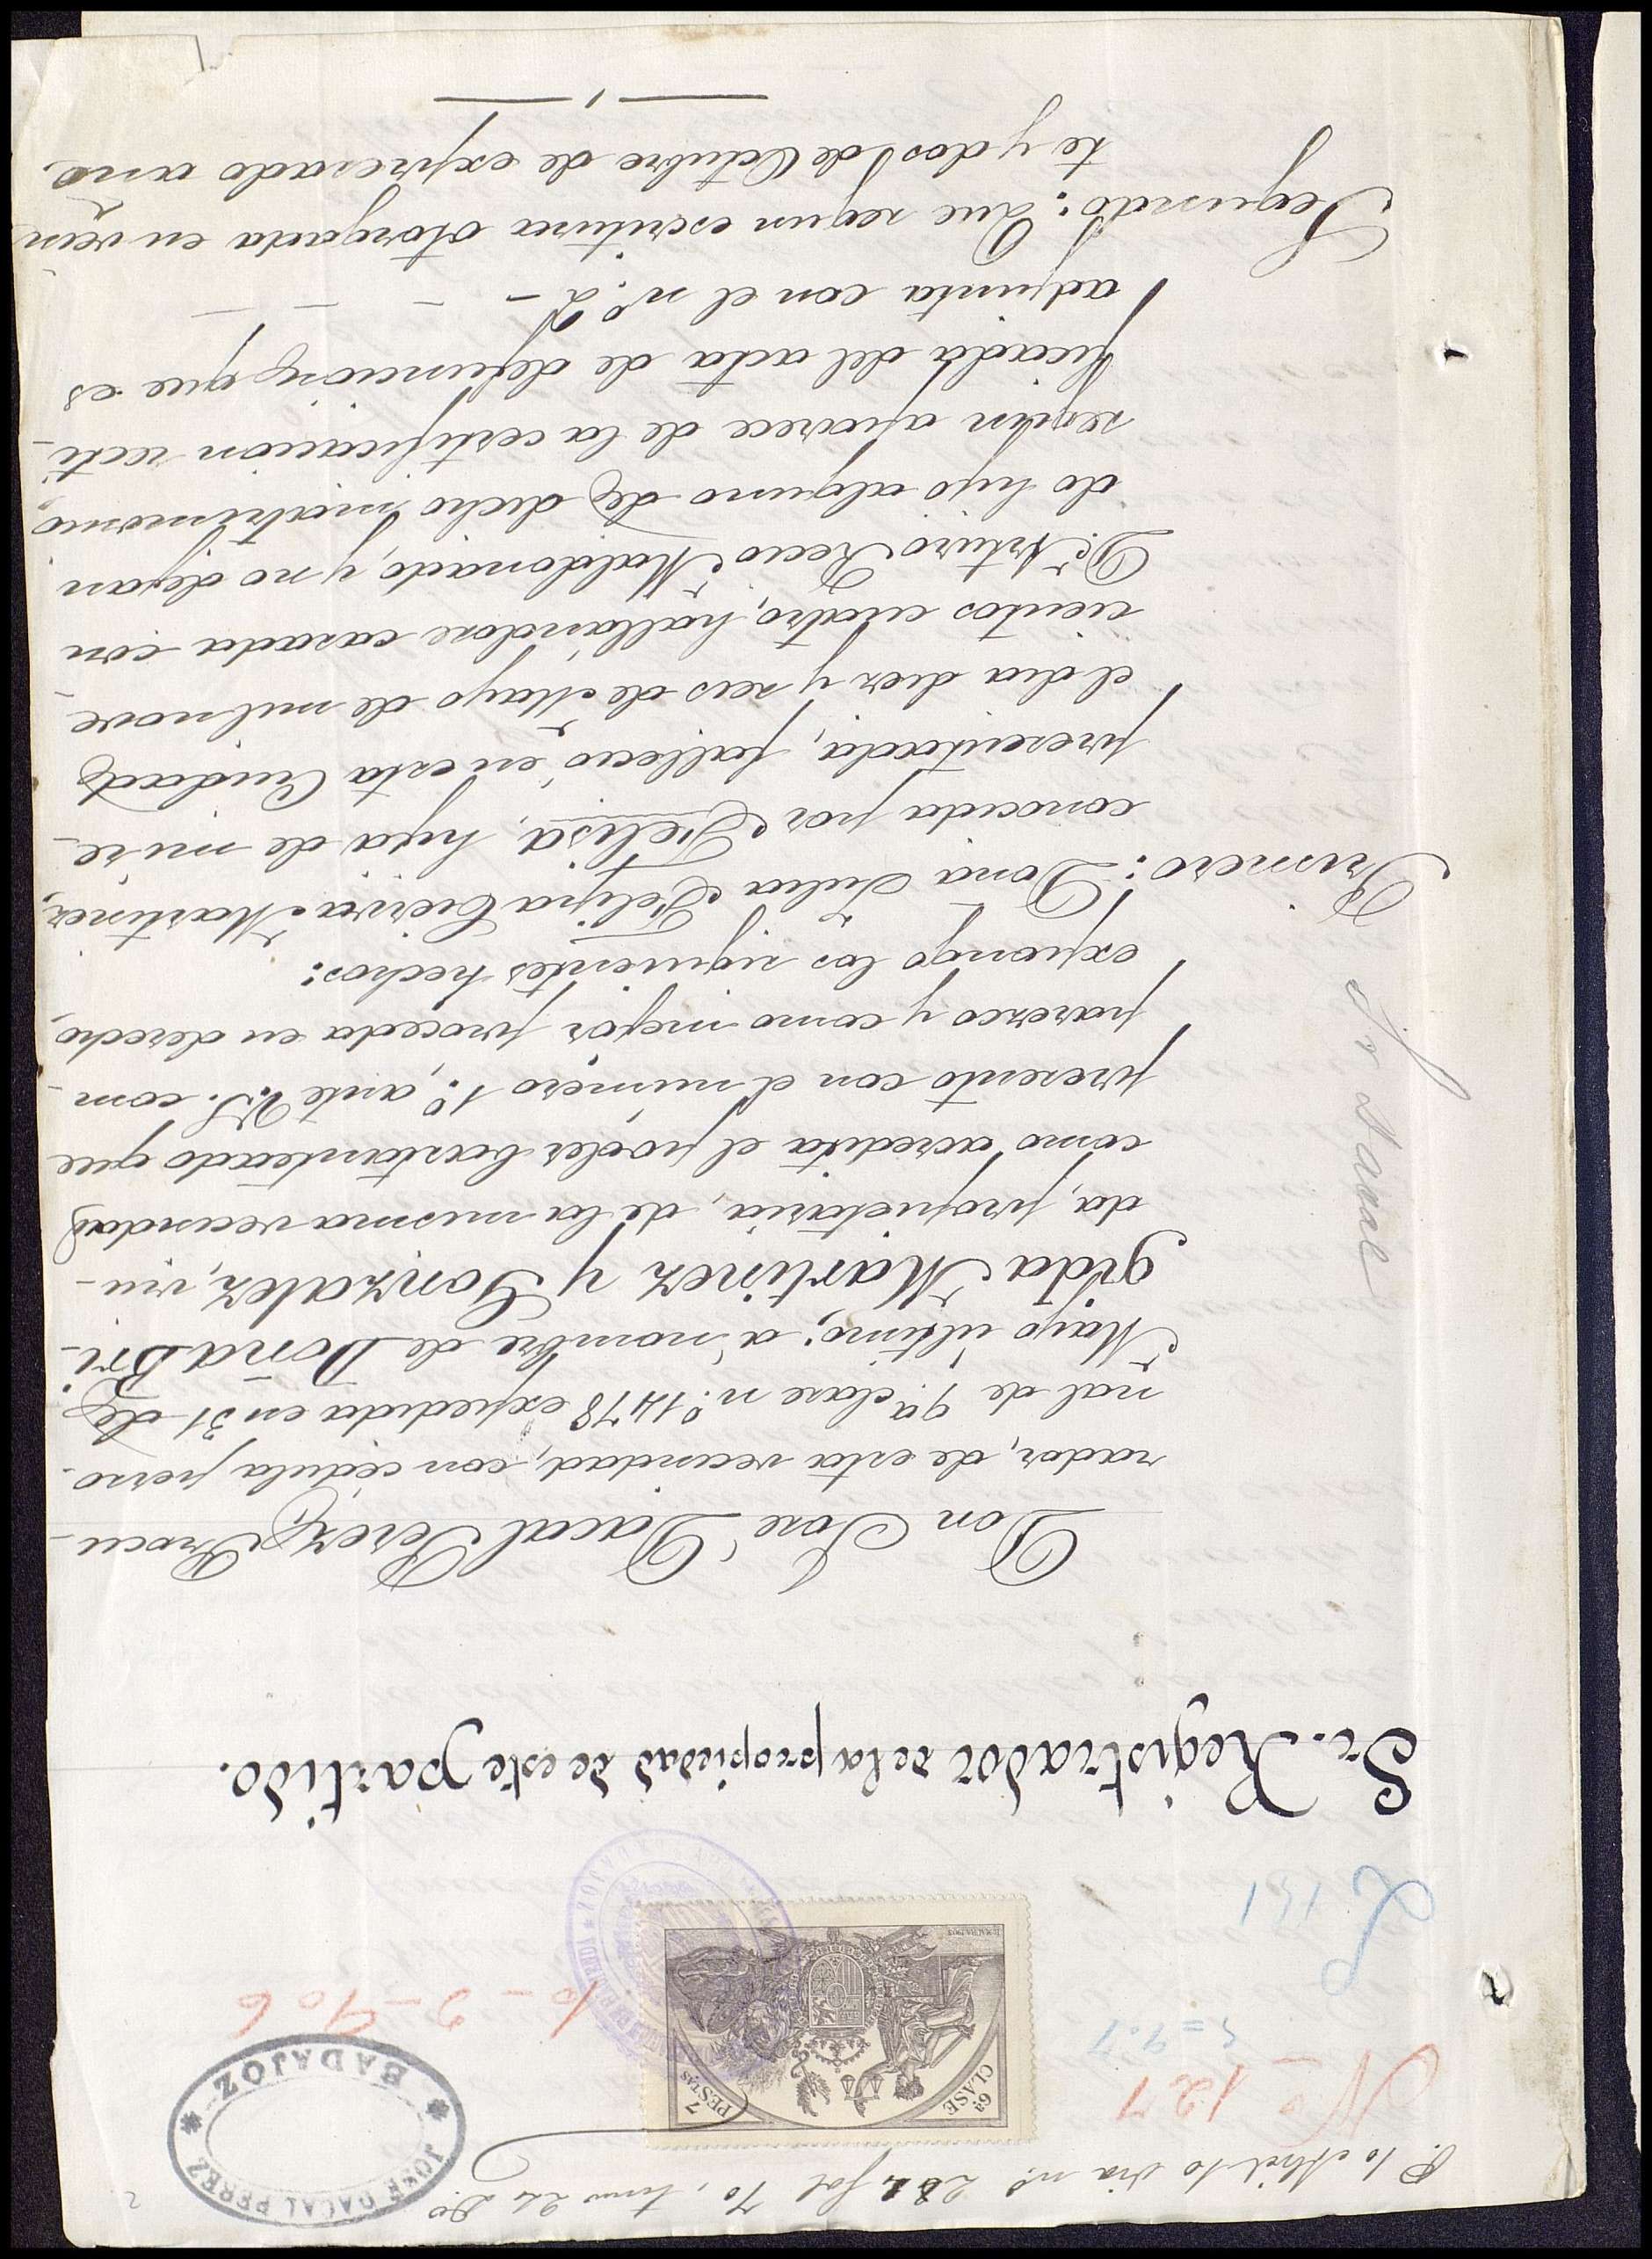 P. 10 Abril 10 dia nº 282 fol 70, tomo 24 Do
JOSÉ DACAL PEREZ
* BADAJOZ *
Nº 127
6ª CLASE
7 PESTAS
10-3-906
L 151
Sr. Registrador de la propiedad de este partido.
Don José Dacal Perez, Procu-
rador, de esta vecindad, con cédula perso-
nal de 9ª clase nº 1478 expedida en 31 de
Mayo último; a nombre de Doña Bri-
gida Martinez y Gonzalez, viu-
da, propietaria, de la misma vecindad
como acredita el poder bastanteado que
presento con el número 1º, ante V.S. com-
parezco y como mejor proceda en derecho,
expongo los siguientes hechos:
Sr Dacal
Primero: Doña Julia Felipa Cierva Martinez,
conocida por Felisa, hija de mi re-
presentada, falleció en esta Ciudad
el dia diez y seis de Mayo de mil nove-
cientos cuatro, hallándose casada con
D. Arturo Recio Maldonado, y no dejan
do hijo alguno de dicho matrimonio,
según aparece de la certificacion recti-
ficada del acta de defuncion que es
adjunta con el nº 2 -
Segundo: Que segun escritura otorgada en vein
te y dos de Octubre de expresado año.